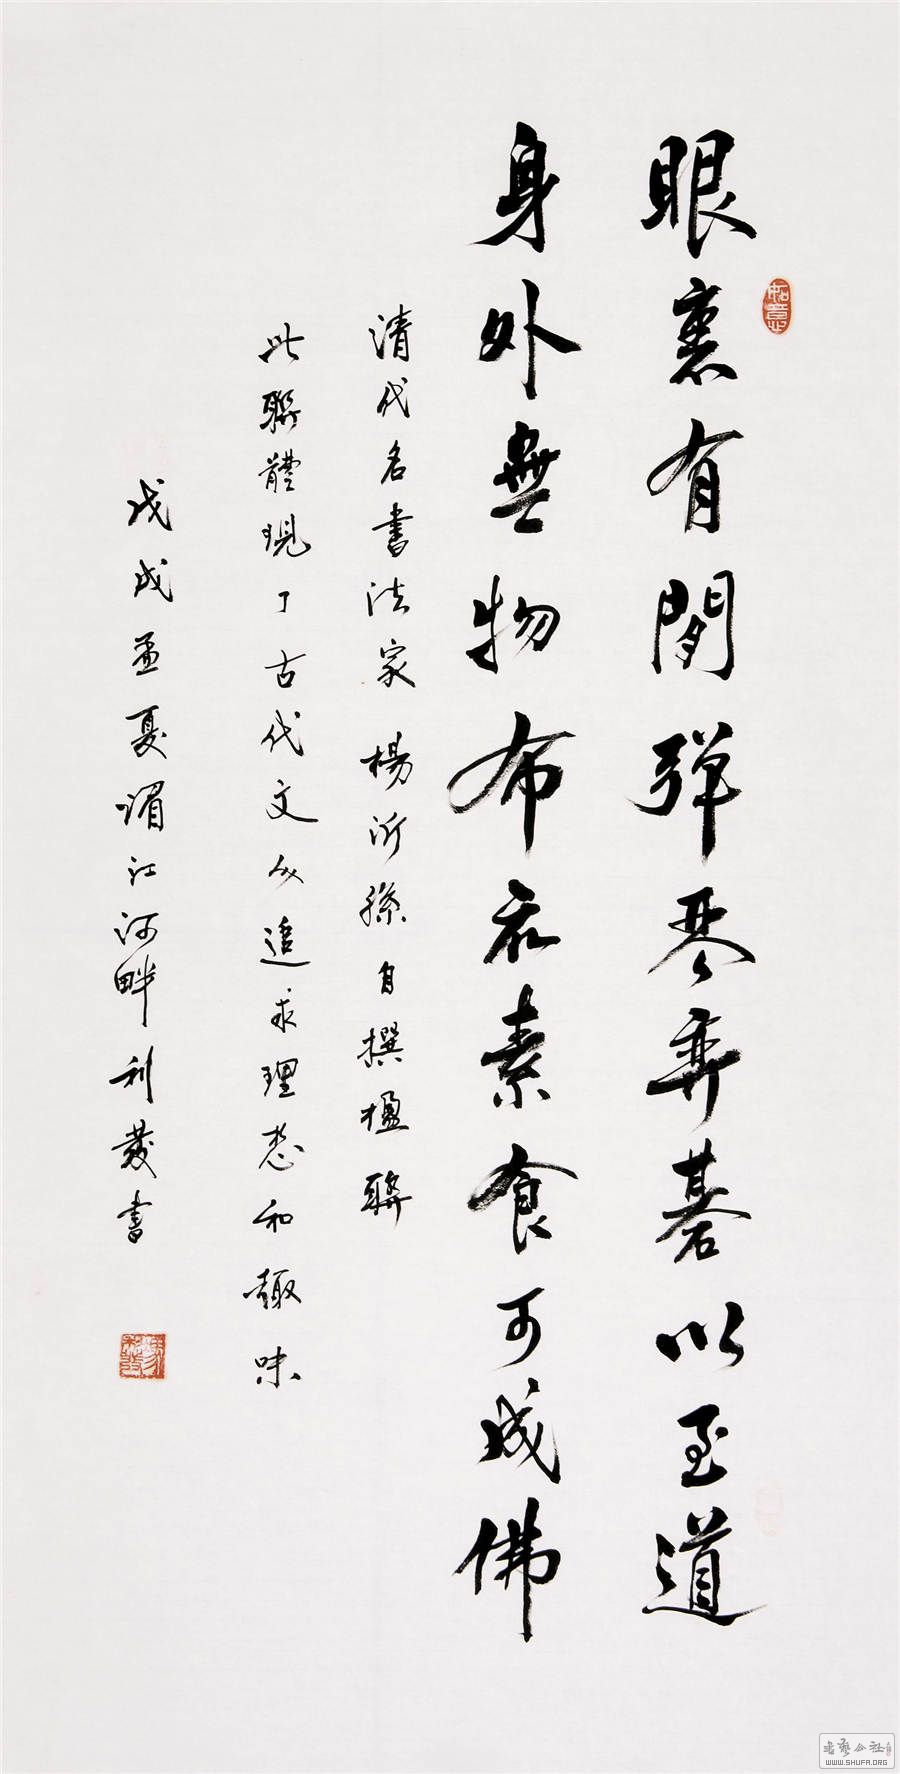 眼裏有閒彈琴弈碁以至道
身外無物布衣素食可成佛
清代名書法家楊沂孫自撰楹聯
此聯體現了古代文人追求理想和趣味
戊戌孟夏湄江河畔利發書
書藝公社
WWW.SHUFA.ORG